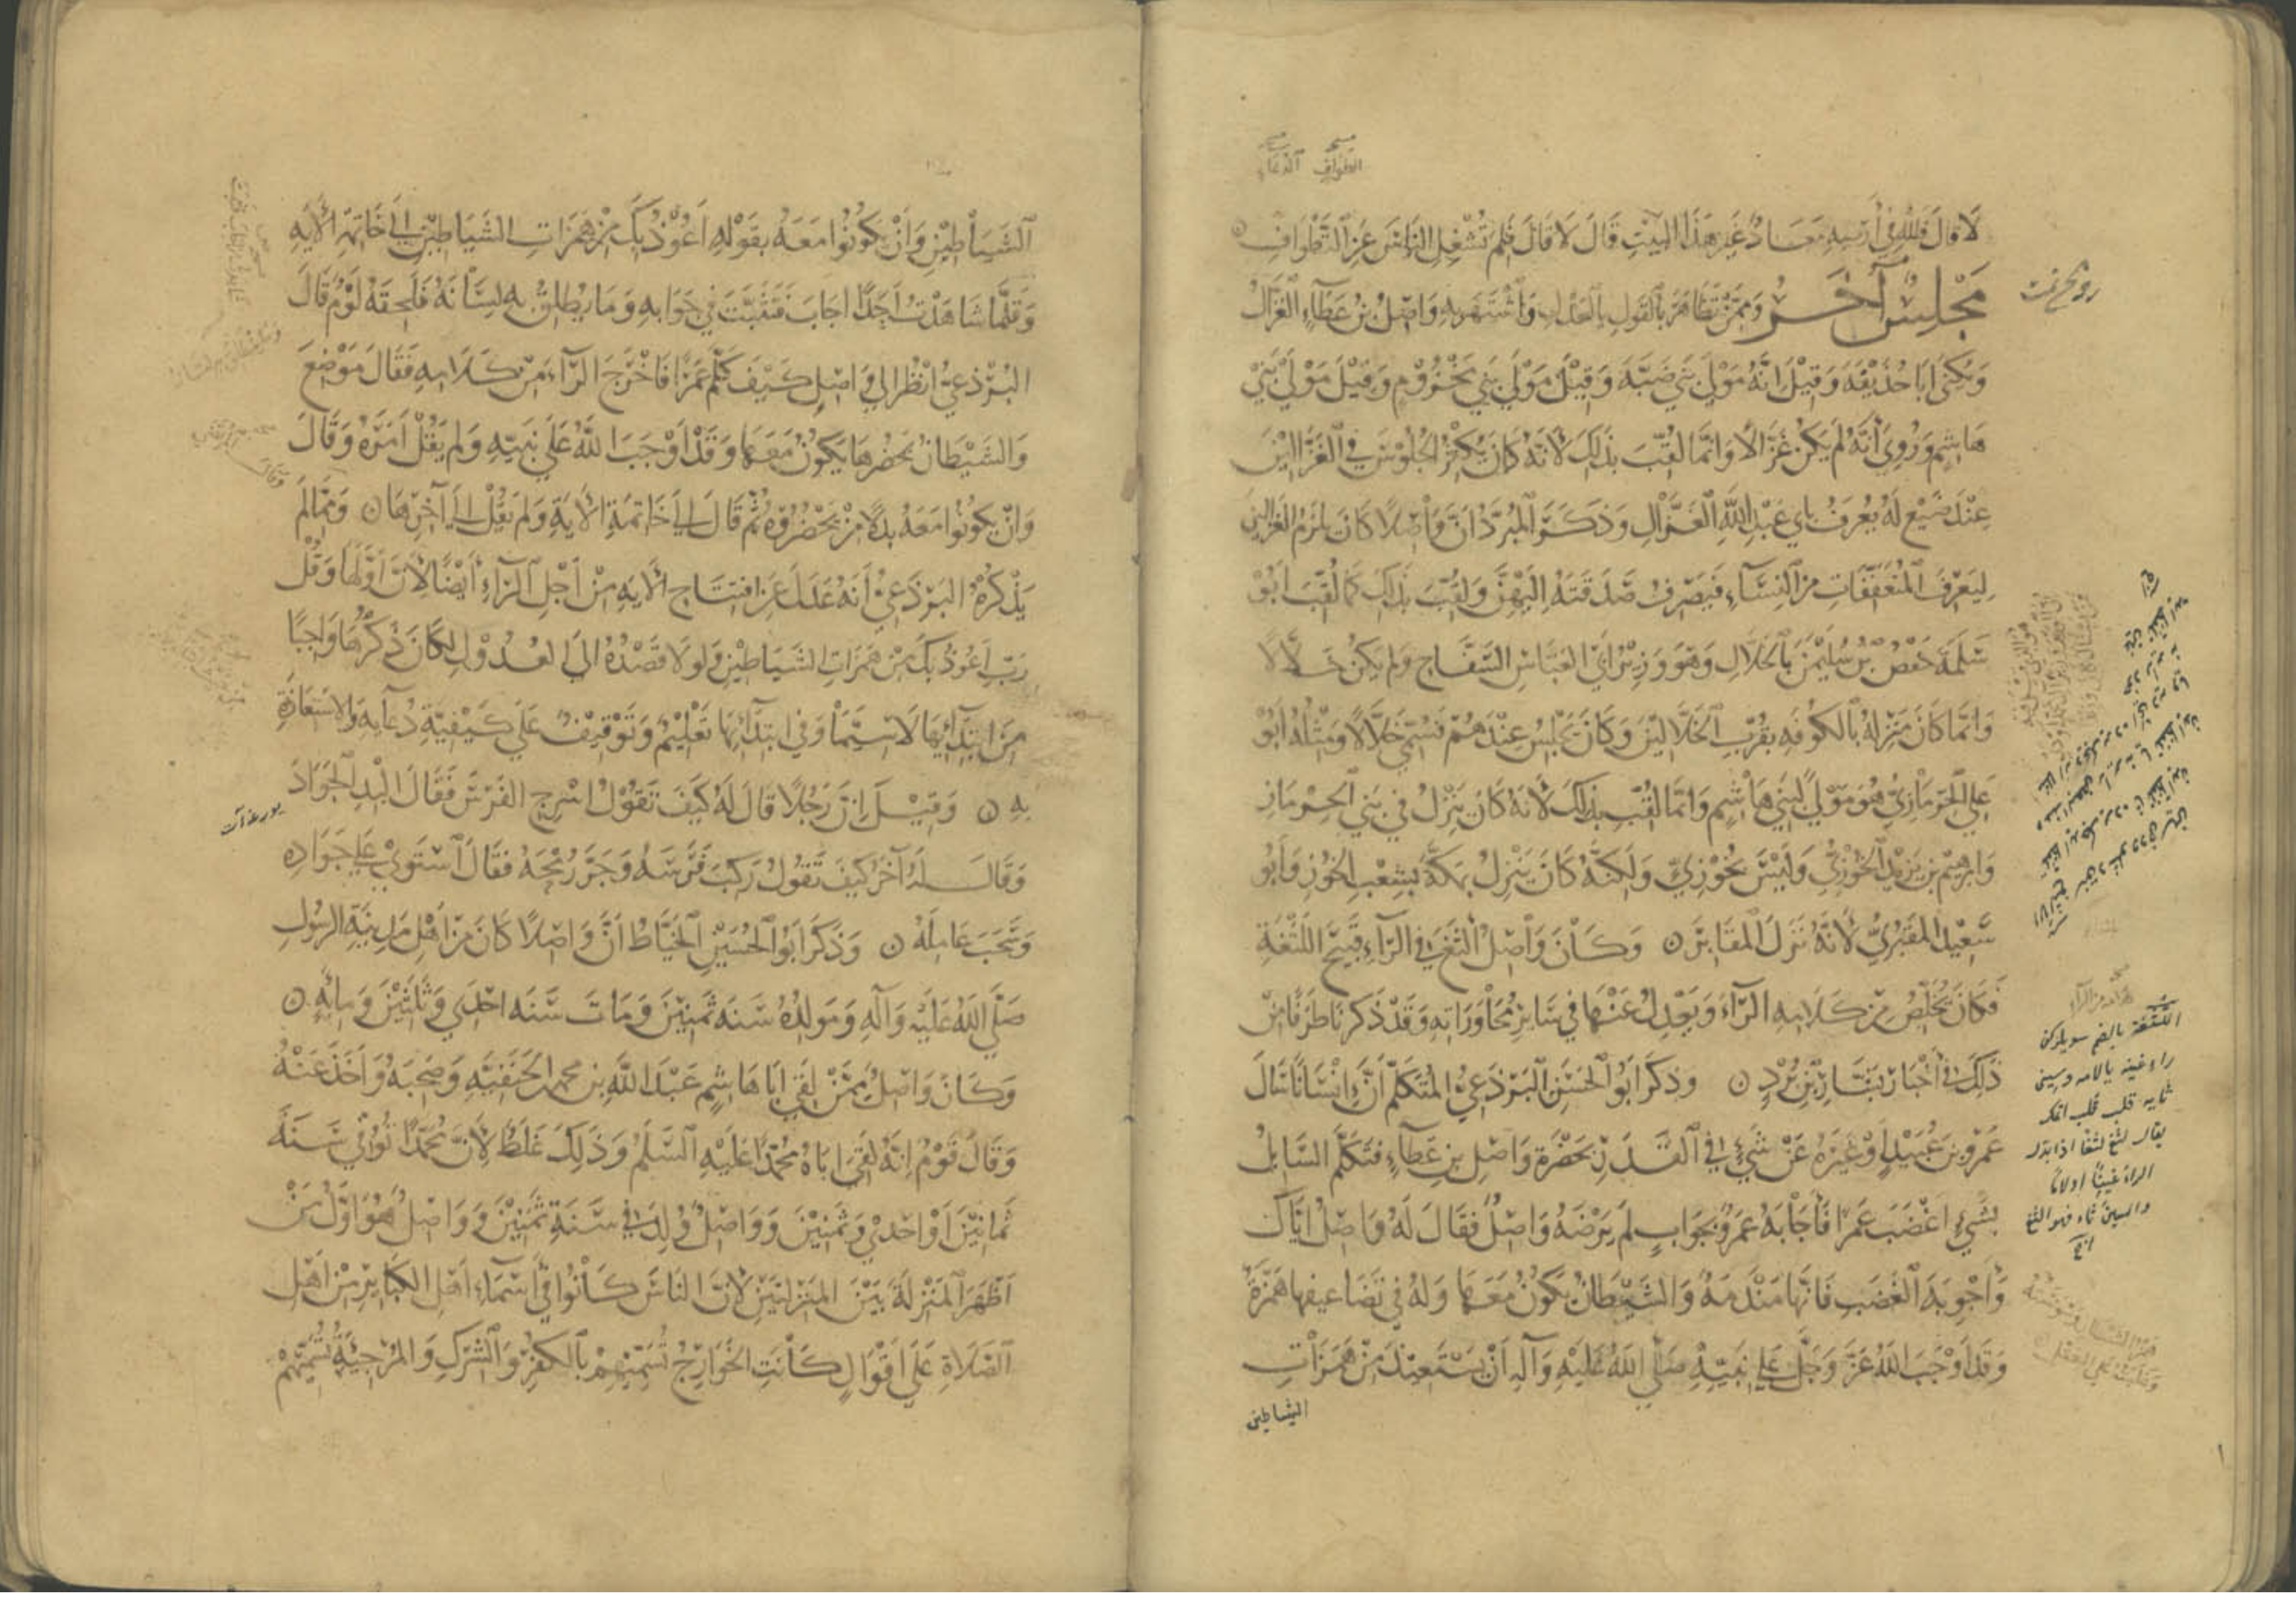 لَا قَالَ فَلِلّٰهِ فِي أَرْضِهِ مَعَادٌ غَيْرُ هَذَا الْبَيْتِ قَالَ لَا قَالَ فَلِمَ تُشْغِلُ النَّاسَ عَنِ الطَّوَافِ
مَجْلِسٌ آخَرُ وَمِمَّنْ تَظَاهَرَ بِالْقَوْلِ بِالْعَدْلِ وَاشْتَهَرَ بِهِ وَاصِلُ بْنُ عَطَاءٍ الْغَزَّالُ
وَيُكْنَى أَبَا حُذَيْفَةَ وَقِيلَ إِنَّهُ مَوْلَى بَنِي ضَبَّةَ وَقِيلَ مَوْلَى بَنِي مَخْزُومٍ وَقِيلَ مَوْلَى بَنِي
هَاشِمٍ وَرُوِيَ أَنَّهُ لَمْ يَكُنْ غَزَّالًا وَإِنَّمَا لُقِّبَ بِذَلِكَ لِأَنَّهُ كَانَ يُكْثِرُ الْجُلُوسَ فِي الْغَزَّالِينَ
عِنْدَ رَضِيعٍ لَهُ يُعْرَفُ بِأَبِي عَبْدِ اللهِ الْغَزَّالِ وَذَكَرَ الْمُبَرَّدُ أَنَّ وَاصِلًا كَانَ يَلْزَمُ الْغَزَّالِينَ
لِيَعْرِفَ الْمُتَعَفِّفَاتِ مِنَ النِّسَاءِ فَيَصْرِفُ صَدَقَتَهُ إِلَيْهِنَّ وَلُقِّبَ بِذَلِكَ كَمَا لُقِّبَ أَبُو
سَلَمَةَ حَفْصُ بْنُ سُلَيْمٰنَ بِالْخَلَّالِ وَهُوَ وَزِيرُ أَبِي الْعَبَّاسِ السَّفَّاحِ وَلَمْ يَكُنْ خَلَّالًا
وَإِنَّمَا كَانَ مَنْزِلُهُ بِالْكُوفَةِ بِقُرْبِ الْخَلَّالِينَ وَكَانَ يَجْلِسُ عِنْدَهُمْ فَسُمِّيَ خَلَّالًا وَمِثْلُهُ أَبُو
عَلِيٍّ الْحِرْمَازِيُّ هُوَ مَوْلًى لِبَنِي هَاشِمٍ وَإِنَّمَا لُقِّبَ بِذَلِكَ لِأَنَّهُ كَانَ يَنْزِلُ فِي بَنِي الْحِرْمَازِ
وَإِبْرٰهِيمُ بْنُ يَزِيدَ الْخُوزِيُّ وَلَيْسَ بِخُوزِيٍّ وَلَكِنَّهُ كَانَ يَنْزِلُ بِمَكَّةَ بِشِعْبِ الْخُوزِ وَأَبُو
سَعِيدٍ الْمَقْبُرِيُّ لِأَنَّهُ نَزَلَ الْمَقَابِرَ وَكَانَ وَاصِلٌ أَلْثَغَ فِي الرَّاءِ قَبِيحَ اللُّثْغَةِ
فَكَانَ يُخَلِّصُ مِنْ كَلَامِهِ الرَّاءَ وَيَعْدِلُ عَنْهَا فِي سَائِرِ مُحَاوَرَاتِهِ وَقَدْ ذَكَرْنَا طَرَفًا مِنْ
ذَلِكَ فِي أَخْبَارِ بَشَّارِ بْنِ بُرْدٍ وَذَكَرَ أَبُو الْحَسَنِ الْبَرْذَعِيُّ الْمُتَكَلِّمُ أَنَّ إِنْسَانًا سَأَلَ
عَمْرَو بْنَ عُبَيْدٍ أَوْ غَيْرَهُ عَنْ شَيْءٍ فِي الْقَدَرِ بِحَضْرَةِ وَاصِلِ بْنِ عَطَاءٍ فَتَكَلَّمَ السَّائِلُ
بِشَيْءٍ أَغْضَبَ عَمْرًا فَأَجَابَهُ عَمْرٌو بِجَوَابٍ لَمْ يَرْضَهُ وَاصِلٌ فَقَالَ لَهُ وَاصِلٌ إِيَّاكَ
وَأَجْوِبَةَ الْغَضَبِ فَإِنَّهَا مَنْدَمَةٌ وَالشَّيْطَانُ يَكُونُ مَعَهَا وَلَهُ فِي تَضَاعِيفِهَا هَمْزَةٌ
وَقَدْ أَوْجَبَ اللهُ عَزَّ وَجَلَّ عَلَى نَبِيِّهِ صَلَّى اللهُ عَلَيْهِ وَآلِهِ أَنْ يَسْتَعِيذَ مِنْ هَمَزَاتِ
الشياطين
اللثغة بالضم
الشَّيَاطِينِ وَأَنْ يَكُونُوا مَعَهُ بِقَوْلِهِ أَعُوذُ بِكَ مِنْ هَمَزَاتِ الشَّيَاطِينِ إِلَى خَاتِمَةِ الْآيَةِ
وَقَلَّمَا شَاهَدْتُ أَحَدًا أَجَابَ فَتَثَبَّتَ فِي جَوَابِهِ وَمَا يُطْلِقُ بِهِ لِسَانَهُ فَلَحِقَهُ لَوْمٌ قَالَ
الْبَرْذَعِيُّ انْظُرْ إِلَى وَاصِلٍ كَيْفَ كَلَّمَ عَمْرًا فَأَخْرَجَ الرَّاءَ مِنْ كَلَامِهِ فَقَالَ مَوْضِعَ
وَالشَّيْطَانُ يَحْضُرُهَا يَكُونُ مَعَهَا وَقَدْ أَوْجَبَ اللهُ عَلَى نَبِيِّهِ وَلَمْ يَقُلْ أَمَرَهُ وَقَالَ
وَأَنْ يَكُونُوا مَعَهُ بَدَلًا مِنْ يَحْضُرُوهُ ثُمَّ قَالَ إِلَى خَاتِمَةِ الْآيَةِ وَلَمْ يَقُلْ إِلَى آخِرِهَا وَمِمَّا لَمْ
يَذْكُرْهُ الْبَرْذَعِيُّ أَنَّهُ عَدَلَ عَنِ افْتِتَاحِ الْآيَةِ مِنْ أَجْلِ الرَّاءِ أَيْضًا لِأَنَّ أَوَّلَهَا وَقُلْ
رَبِّ أَعُوذُ بِكَ مِنْ هَمَزَاتِ الشَّيَاطِينِ وَلَوْلَا قَصْدُهُ إِلَى الْعُدُولِ لَكَانَ ذِكْرُهَا وَاجِبًا
مِنِ ابْتِدَائِهَا لَا سِيَّمَا وَفِي ابْتِدَائِهَا تَعْلِيمٌ وَتَوْقِيفٌ عَلَى كَيْفِيَّةِ دُعَائِهِ وَالِاسْتِعَاذَةِ
بِهِ وَقِيلَ إِنَّ رَجُلًا قَالَ لَهُ كَيْفَ تَقُولُ أَسْرِجِ الْفَرَسَ فَقَالَ أَلْبِدِ الْجَوَادَ
وَقَالَ لَهُ آخَرُ كَيْفَ تَقُولُ رَكِبَ فَرَسَهُ وَجَرَّ رُمْحَهُ فَقَالَ اسْتَوَى عَلَى جَوَادِهِ
وَسَحَبَ عَامِلَهُ وَذَكَرَ أَبُو الْحُسَيْنِ الْخَيَّاطُ أَنَّ وَاصِلًا كَانَ مِنْ أَهْلِ مَدِينَةِ الرَّسُولِ
صَلَّى اللهُ عَلَيْهِ وَآلِهِ وَمَوْلِدُهُ سَنَةَ ثَمٰنِينَ وَمَاتَ سَنَةَ إِحْدَى وَثَلٰثِينَ وَمِائَةٍ
وَكَانَ وَاصِلٌ مِمَّنْ لَقِيَ أَبَا هَاشِمٍ عَبْدَ اللهِ بْنَ مُحَمَّدِ بْنِ الْحَنَفِيَّةِ وَصَحِبَهُ وَأَخَذَ عَنْهُ
وَقَالَ قَوْمٌ إِنَّهُ لَقِيَ أَبَاهُ مُحَمَّدًا عَلَيْهِ السَّلٰمُ وَذَلِكَ غَلَطٌ لِأَنَّ مُحَمَّدًا تُوُفِّيَ سَنَةَ
ثَمَانِينَ أَوْ إِحْدَى وَثَمٰنِينَ وَوَاصِلٌ وُلِدَ فِي سَنَةِ ثَمٰنِينَ وَوَاصِلٌ هُوَ أَوَّلُ مَنْ
أَظْهَرَ الْمَنْزِلَةَ بَيْنَ الْمَنْزِلَتَيْنِ لِأَنَّ النَّاسَ كَانُوا فِي أَسْمَاءِ أَهْلِ الْكَبَائِرِ مِنْ أَهْلِ
الصَّلَاةِ عَلَى أَقْوَالٍ كَانَتِ الْخَوَارِجُ تُسَمِّيهِمْ بِالْكُفْرِ وَالشِّرْكِ وَالْمُرْجِئَةُ تُسَمِّيهِمْ